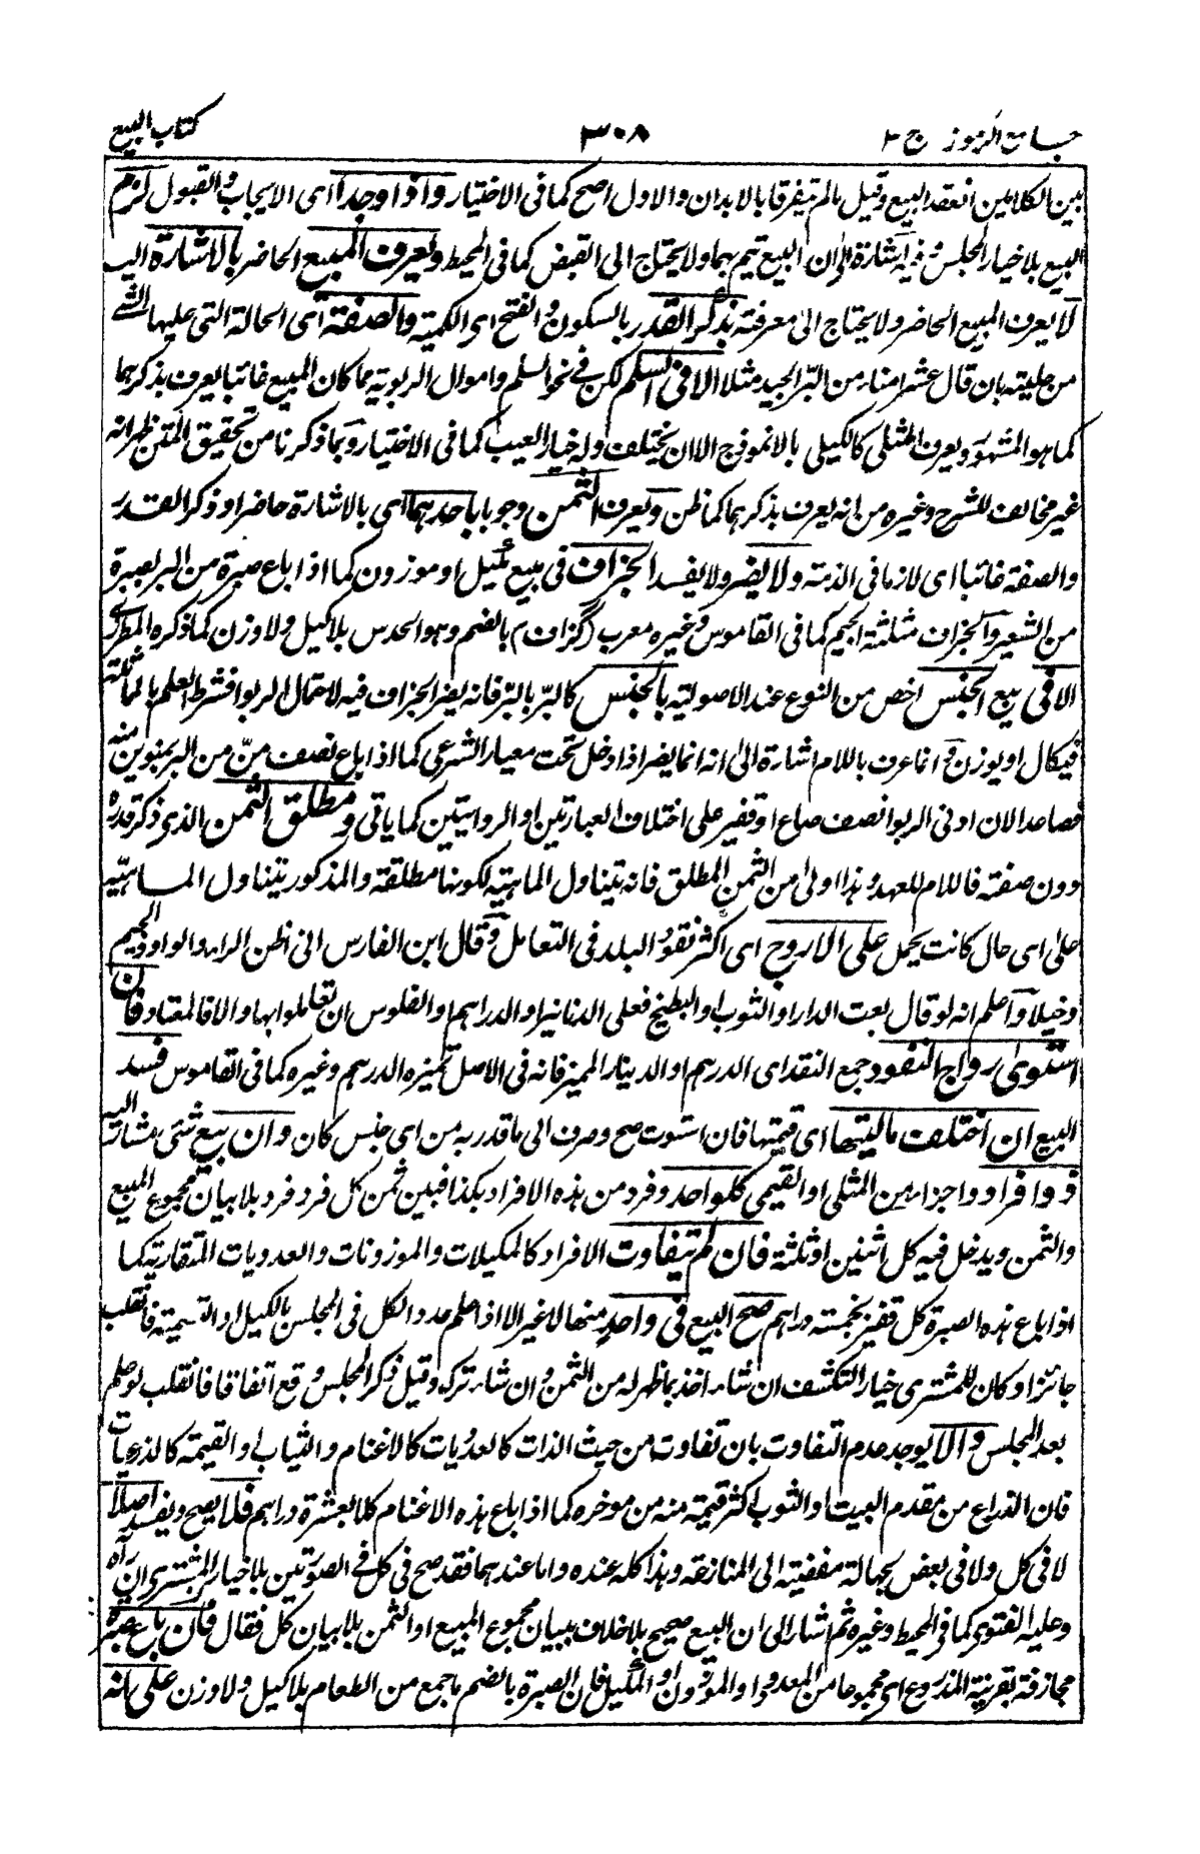 جامع الرموز ج ٢
٣٠٨
كتاب البيع
بين الكلامين انعقد البيع وقيل ما لم يتفرقا بالابدان والاول اصح كما فى الاختيار واذا وجدا اى الايجاب والقبول لزم
البيع بلا خيار المجلس وفيه اشارة الى ان البيع يتم بهما ولا يحتاج الى القبض كما فى المحيط ويعرف المبيع الحاضر بالاشارة اليه
لا يعرف المبيع الحاضر ولا يحتاج الى معرفته بذكر القدر بالسكون والفتح اى الكمية والصفة اى الحالة التى عليها الشئ
من حليته بان قال عشر امناء من البر الجيد مثلا الا فى السلم لكن فى نحو السلم واموال الربوية مما كان المبيع غائبا يعرف بذكرهما
كما هو المشهور ويعرف المثلى كالكيلى بالانموذج الا ان يختلف وله خيار العيب كما فى الاختيار وبما ذكرنا من تحقيق المتن ظهر انه
غير مخالف للشرح وغيره من انه يعرف بذكرهما كما ظن ويعرف الثمن وجوبا باحدهما اى بالاشارة حاضرا وذكر القدر
والصفة غائبا اى لازما فى الذمة ولا يضر ولا يفسد الجزاف فى بيع مكيل او موزون كما اذا باع صبرة من البر بصبرة
من الشعير والجزاف مثلثة الجيم كما فى القاموس وغيره معرب (گزاف) بالضم وهو الحدس بلا كيل ولا وزن كما ذكره المطرزى
الا فى بيع الجنس اخص من النوع عند الاصولية بالجنس كالبر بالبر فانه يضر الجزاف فيه لاحتمال الربوا فشرط العلم بالمماثلة
فيكال او يوزن وانما عرف باللام اشارة الى انه انما يضر اذا دخل تحت معيار الشرعى كما اذا باع نصف من من البر بمنوين منه
فصاعدا لان ادنى الربوا نصف صاع او قفيز على اختلاف العبارتين او الروايتين كما ياتى ومطلق الثمن الذى ذكر قدره
دون صفته فاللام للعهد وهذا اولى من الثمن المطلق فانه يتناول الماهية لكونها مطلقة والمذكور يتناول الماهية
على اى حال كانت يحمل على الاروج اى اكثر نقود البلد فى التعامل وقال ابن الفارس انى اظن الراء والواو والجيم
دخيلا واعلم انه لو قال بعت الدار او الثوب او البطيخ فعلى الدنانير او الدراهم او الفلوس ان تعاملوا بها والا فالمعتاد فان
استوى رواج النقود جمع النقد اى الدرهم او الدينار المميز فانه فى الاصل تميزه الدرهم وغيره كما فى القاموس فسد
البيع ان اختلف ماليتها اى قيمتها فان استوت صح وصرف الى ما قدر به من اى جنس كان وان بيع شئ مشار اليه
ذو افراد واجزاء من المثلى او القيمى كل واحد وفرد من هذه الافراد بكذا فبين ثمن كل فرد فرد بلا بيان مجموع المبيع
والثمن ويدخل فيه كل اثنين او ثلثة فان لم يتفاوت الافراد كالمكيلات والموزونات والعدديات المتقاربة كما
اذا باع هذه الصبرة كل قفيز بخمسة دراهم صح البيع فى واحد منها لا غير الا اذا علم عدد الكل فى المجلس بالكيل والتسمية فانقلب
جائزا وكان للمشترى خيار التكشف ان شاء اخذ بما ظهر له من الثمن وان شاء تركه وقيل ذكر المجلس وقع اتفاقا فانقلب لو علم
بعد المجلس والا يوجد عدم التفاوت بان تفاوت من حيث الذات كالعدديات كالاغنام والثياب او القيمة كالذرعيات
فان الذراع من مقدم البيت او الثوب اكثر قيمة منه من موخره كما اذا باع هذه الاغنام كلا بعشرة دراهم فلا يصح ويفسد اصلا
لا فى كل ولا فى بعض بجهالة مفضية الى المنازعة وهذا كله عنده واما عندهما فقد صح فى كل فى الصورتين بلا خيار للمشترى ان رآه
وعليه الفتوى كما فى المحيط وغيره ثم اشار الى ان البيع صحيح بلا خلاف ببيان مجموع المبيع او الثمن بلا بيان كل فقال فان باع صبرة
مجازفة بقرينة المذروع اى مجموعا من المعدود او الموزون او المكيل فان الصبرة بالضم ما جمع من الطعام بلا كيل ولا وزن على انه